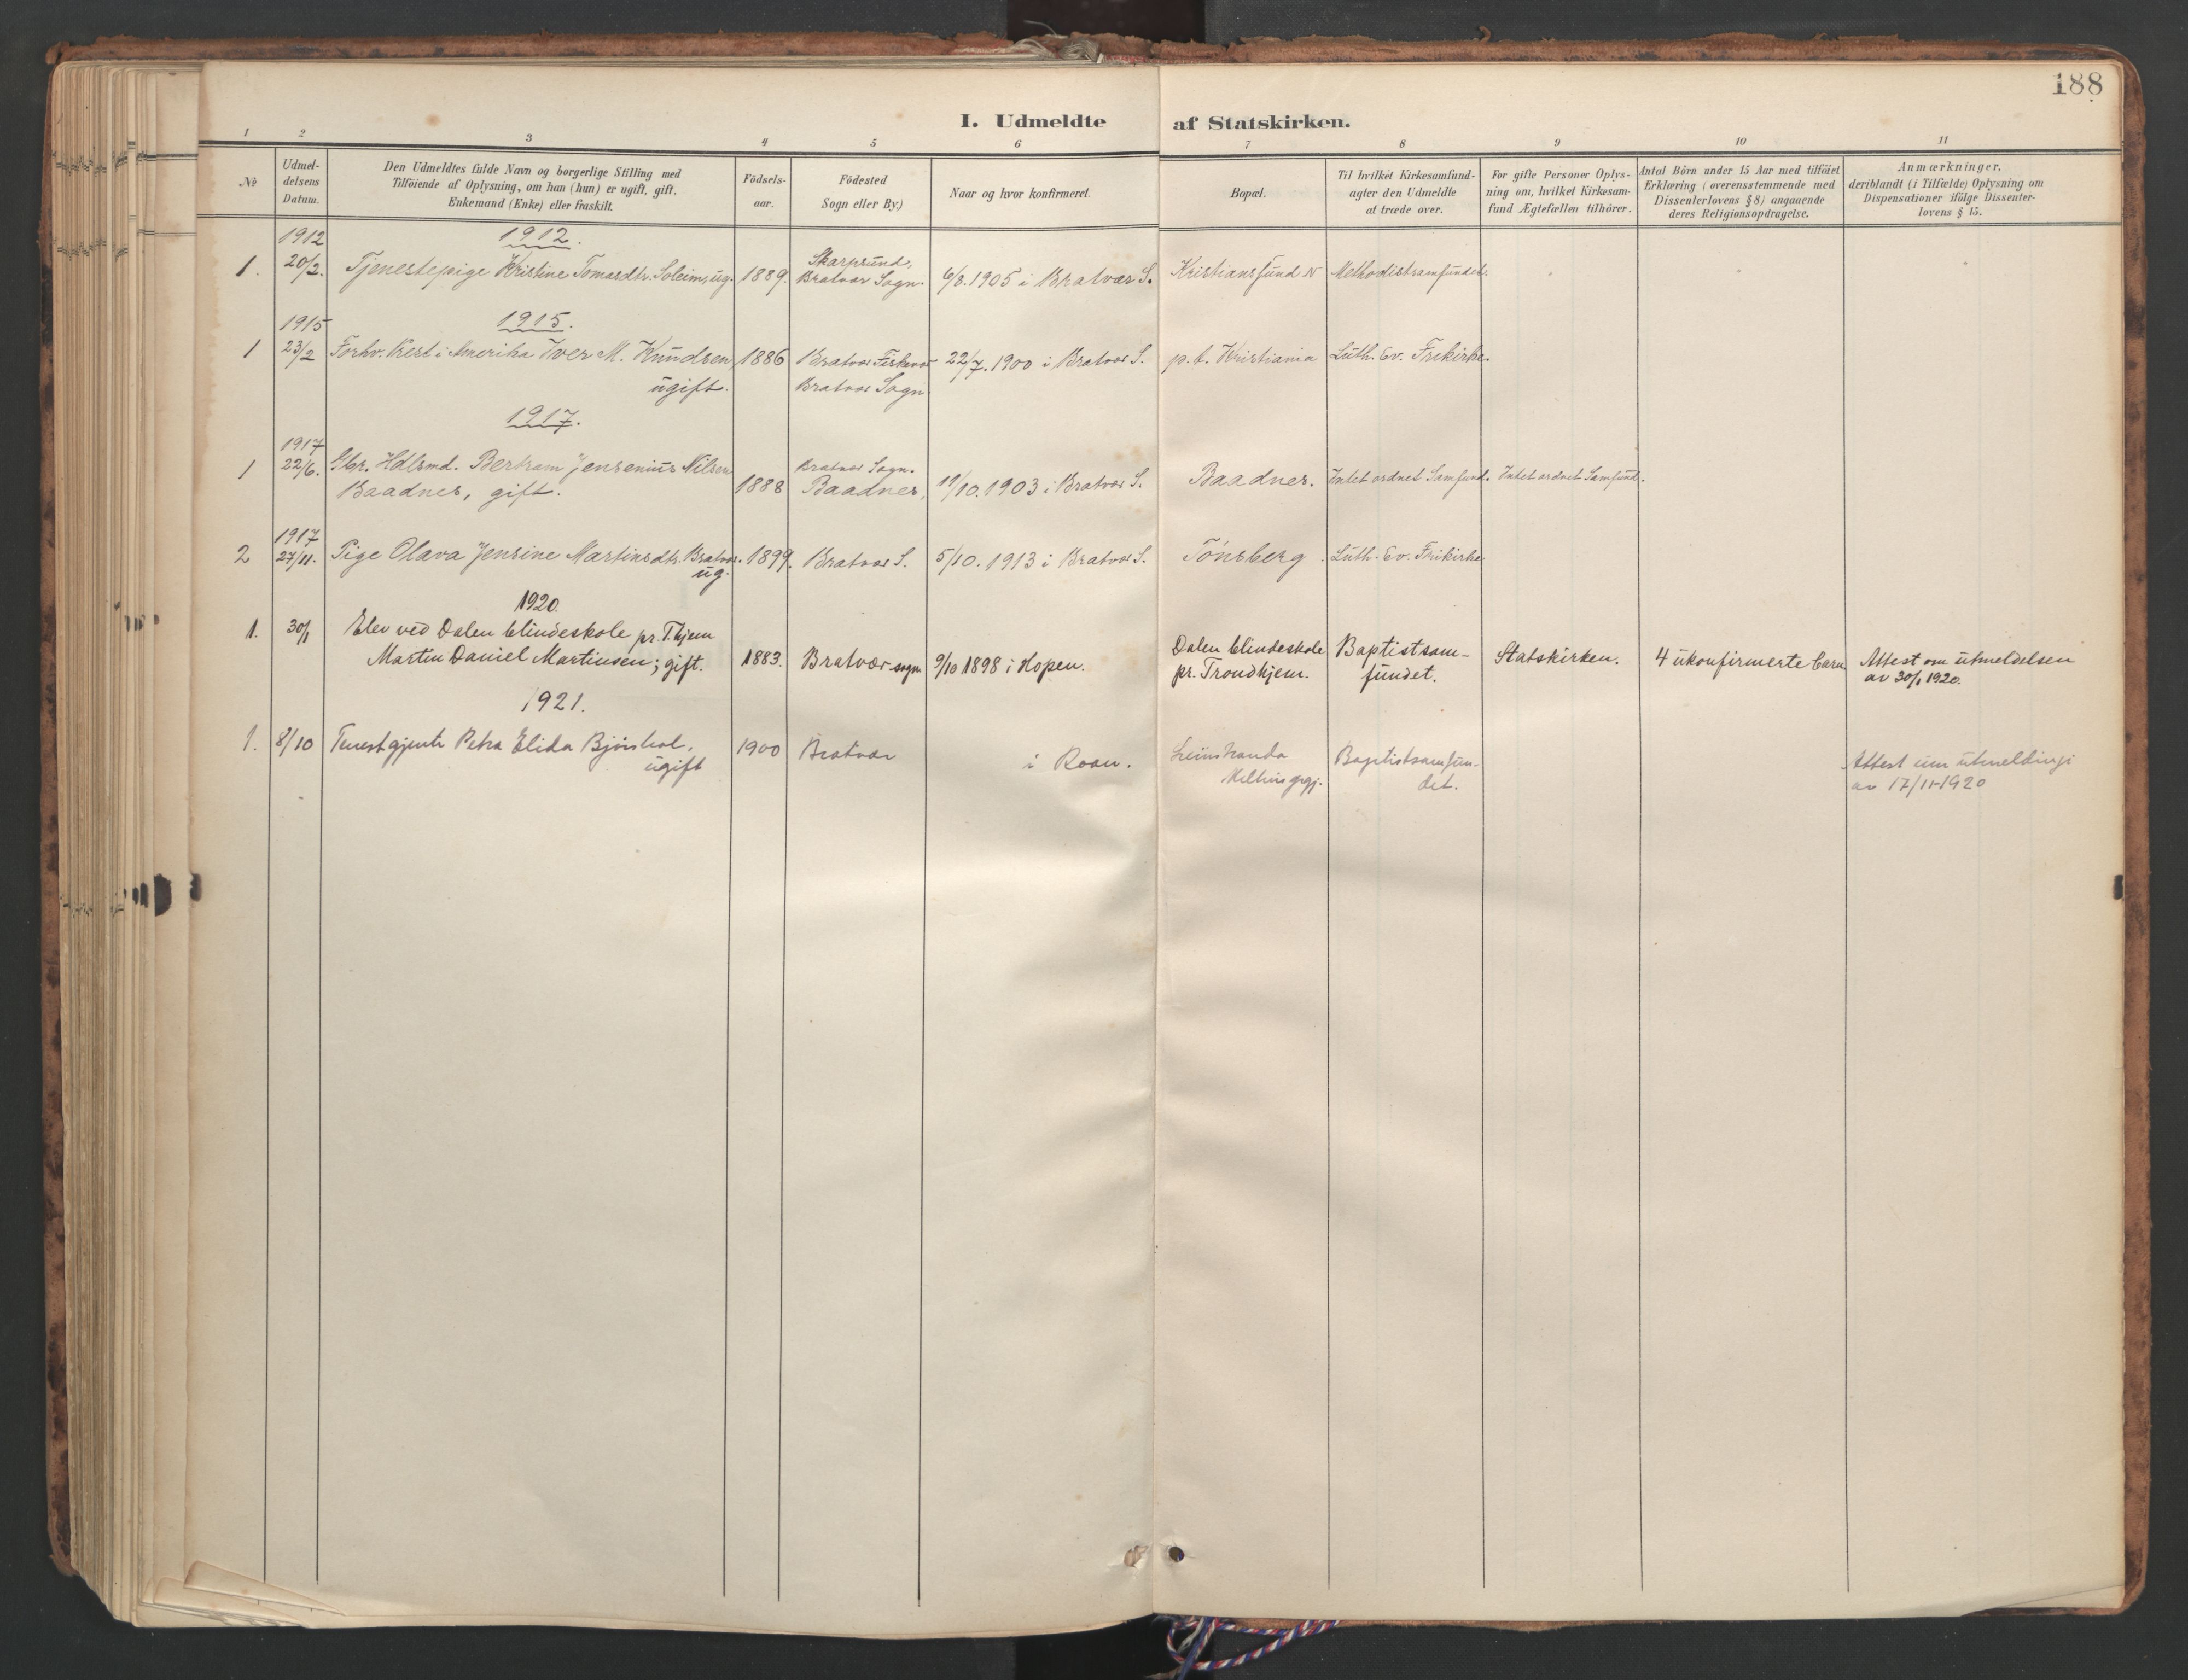 188
I. Udmeldte af Statskirken.
1 2 3 4 5 6 7 8 9 10 11
№
Udmel-
delsens
Datum.
Den Udmeldtes fulde Navn og borgerlige Stilling med
Tilföiende af Oplysning, om han (hun) er ugift, gift,
Enkemand (Enke) eller fraskilt.
Födsels-
aar.
Födested
Sogn eller By.)
Naar og hvor konfirmeret.
Bopæl.
Til hvilket Kirkesamfund-
agter den Udmeldte
at træde over.
For gifte Personer Oplys-
ning om, hvilket Kirkesam-
fund Ægtefællen tilhörer.
Antal Börn under 15 Aar med tilföiet
Erklæring (overensstemmende med
Dissenterlovens § 8) angaaende
deres Religionsopdragelse.
Anmærkninger,
deriblandt (i Tilfælde) Oplysning om
Dispensationer ifölge Dissenter-
lovens § 15.
1912.
1.
1912
20/2.
Tjenestepige Kristine Tomasdtr. Soleim, ug.
1889.
Skarpsund,
Bratvær Sogn.
6/8. 1905 i Bratvær S.
Kristiansund N
Methodistsamfundet.
1915.
1
1915
23/2
Forhv. Prest i Amerika Iver M. Knudsen,
ugift.
1886
Bratvær Fiskevær
Bratvær Sogn
22/7. 1900 i Bratvær S.
p.t. Kristiania
Luth. Ev. Frikirke.
1917.
1
1917
22/6.
Gbr. Hdlsmd. Bertram Jensenius Nilsen
Baadnes, gift.
1888
Bratvær Sogn.
Baadnes,
11/10. 1903 i Bratvær S.
Baadnes.
Intet ordnet Samfund.
Intet ordnet Samfund.
2
1917
27/11.
Pige Olava Jensine Martinsdtr. Bratvær.
ug.
1899.
Bratvær S.
5/10. 1913 i Bratvær S.
Tönsberg.
Luth. Ev. Frikirke
1920.
1.
30/1
Elev ved Dalen blindeskole pr. T.hjem
Martin Daniel Martinsen; gift.
1883.
Bratvær sogn
9/10 1898 i Hopen.
Dalen blindeskole
pr. Trondhjem.
Baptistsam-
fundet.
Statskirken.
4 ukonfirmerte barn
Attest om utmeldelsen
av 30/1 1920.
1921.
1.
8/10
Tenestgjente Petra Elida
ugift
1900
Bratvær
i Roan.
Leinstranda
Baptistsamfun-
det.
Attest um utmeldingi
av 17/11-1920